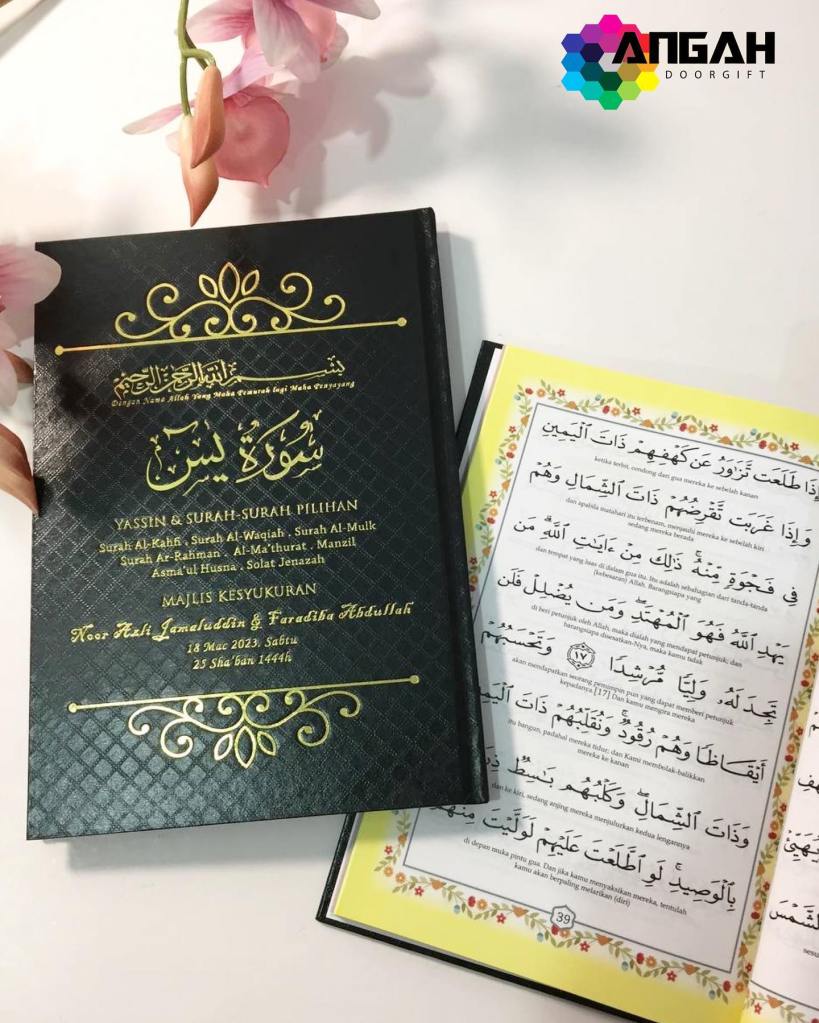 ANGAH
DOORGIFT
بِسْمِ اللهِ الرَّحْمٰنِ الرَّحِيْمِ
Dengan Nama Allah Yang Maha Pemurah lagi Maha Penyayang
سُورَةُ يسٓ
YASSIN & SURAH-SURAH PILIHAN
Surah Al-Kahfi . Surah Al-Waqiah . Surah Al-Mulk
Surah Ar-Rahman . Al-Ma'thurat . Manzil
Asma'ul Husna . Solat Jenazah
MAJLIS KESYUKURAN
Noor Azli Jamaluddin & Faradiba Abdullah
18 Mac 2023, Sabtu
25 Sha'ban 1444h
إِذَا طَلَعَت تَّزَٰوَرُ عَن كَهْفِهِمْ ذَاتَ ٱلْيَمِينِ
ketika terbit, condong dari gua mereka ke sebelah kanan
وَإِذَا غَرَبَت تَّقْرِضُهُمْ ذَاتَ ٱلشِّمَالِ وَهُمْ
dan apabila matahari itu terbenam, menjauhi mereka ke sebelah kiri
sedang mereka berada
فِى فَجْوَةٍ مِّنْهُ ۚ ذَٰلِكَ مِنْ ءَايَٰتِ ٱللَّهِ ۗ مَن
dan tempat yang luas di dalam gua itu. Itu adalah sebahagian dari tanda-tanda
(kebesaran) Allah. Barangsiapa yang
يَهْدِ ٱللَّهُ فَهُوَ ٱلْمُهْتَدِ ۖ وَمَن يُضْلِلْ فَلَن
di beri petunjuk oleh Allah, maka dialah yang mendapat petunjuk; dan
barangsiapa disesatkan-Nya, maka kamu tidak
تَجِدَ لَهُۥ وَلِيًّا مُّرْشِدًا ١٧ وَتَحْسَبُهُمْ
akan mendapatkan seorang pemimpin pun yang dapat memberi petunjuk
kepadanya.[17] Dan kamu mengira mereka
أَيْقَاظًا وَهُمْ رُقُودٌ ۚ وَنُقَلِّبُهُمْ ذَاتَ ٱلْيَمِ
itu bangun, padahal mereka tidur; dan Kami membolak-balikkan
mereka ke kanan
وَذَاتَ ٱلشِّمَالِ ۖ وَكَلْبُهُم بَٰسِطٌ ذِ
dan ke kiri, sedang anjing mereka menjulurkan kedua lengannya
بِٱلْوَصِيدِ ۚ لَوِ ٱطَّلَعْتَ عَلَيْهِمْ لَوَلَّيْتَ مِنْهُ
di depan muka pintu gua. Dan jika kamu menyaksikan mereka, tentulah
kamu akan berpaling melarikan (diri)
39